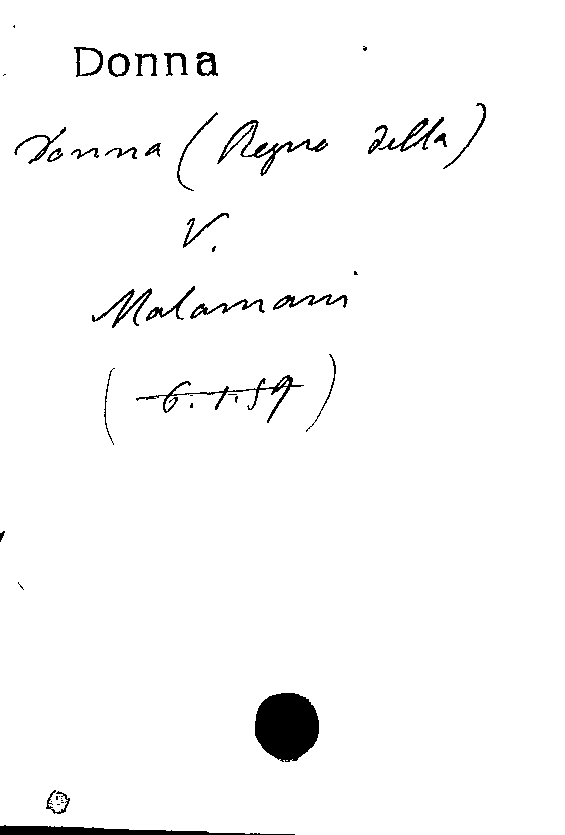 Donna
Donna (Regno della)
V.
Malamani
(6.1.59)